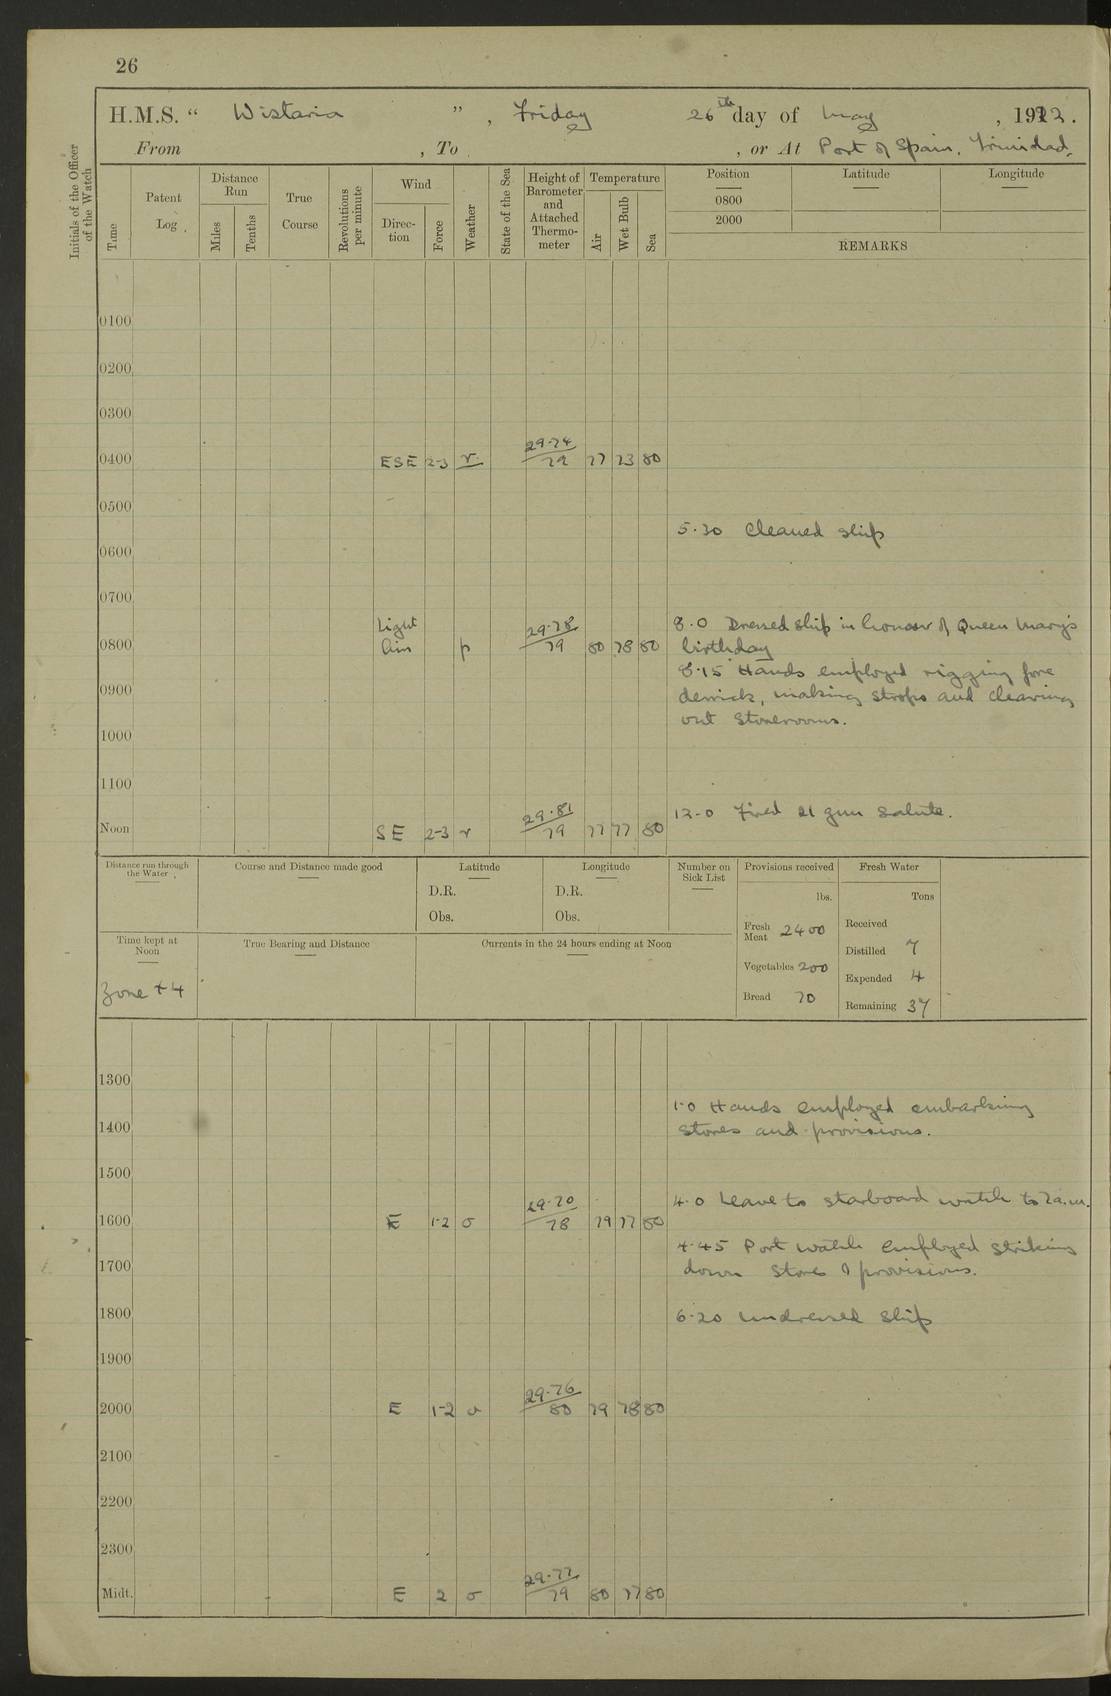 26
H.M.S. “ Wistaria ” , Friday 26th day of May , 1922 .
From , To , or At Port of Spain, Trinidad,
Initials of the Officer of the Watch
Time
Patent Log
Distance Run
Miles
Tenths
True Course
Revolutions per minute
Wind
Direc-tion
Force
Weather
State of the Sea
Height of Barometer and Attached Thermo-meter
Temperature
Air
Wet Bulb
Sea
Position Latitude Longitude
0800
2000
REMARKS
0100
0200
0300
29.74
0400 ESE 2-3 r 79 77 73 80
0500
5.30 Cleaned ship
0600
0700
Light 29.78 8.0 Dressed ship in honour of Queen Mary's
0800 Airs p 79 80 78 80 birthday
8.15 Hands employed rigging fore
0900 derrick, making strops and clearing
out storerooms.
1000
1100
29.81 12.0 Fired 21 gun salute.
Noon SE 2-3 r 79 77 77 80
Distance run through the Water
Course and Distance made good
Latitude
D.R.
Obs.
Longitude
D.R.
Obs.
Number on Sick List
Provisions received
lbs.
Fresh Meat 2400
Vegetables 200
Bread 70
Fresh Water
Tons
Received
Distilled 7
Expended 4
Remaining 37
Time kept at Noon
Zone +4
True Bearing and Distance
Currents in the 24 hours ending at Noon
1300
1.0 Hands employed embarking
1400 stores and provisions.
1500
29.70 4.0 Leave to starboard watch to 7 a.m.
1600 E 1-2 o 78 79 77 80
4.45 Port watch employed striking
1700 down stores & provisions.
1800 6.20 Undressed ship
1900
29.76
2000 E 1-2 o 80 79 78 80
2100
2200
2300
29.77
Midt. E 2 o 79 80 77 80